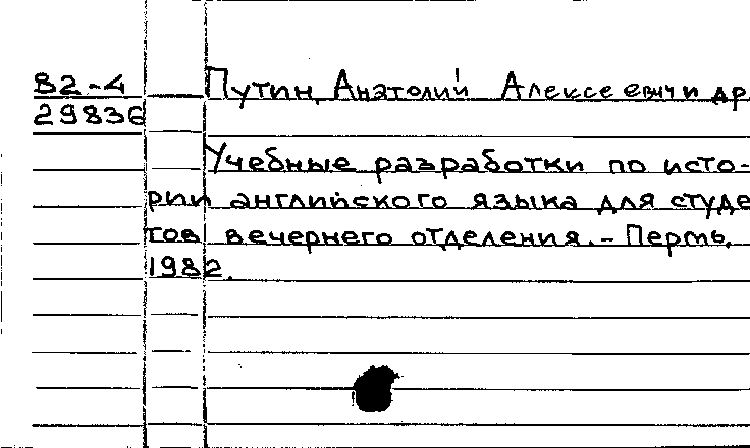 82-4
29836
Путин, Анатолий Алексеевич и др.
Учебные разработки по исто-
рии английского языка для студе
тов вечернего отделения. - Пермь,
1982.